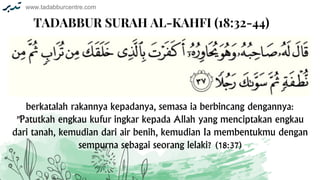 تدبر www.tadabburcentre.com
TADABBUR SURAH AL-KAHFI (18:32-44)
قَالَ لَهُۥ صَاحِبُهُۥ وَهُوَ يُحَاوِرُهُۥٓ أَكَفَرْتَ بِٱلَّذِى خَلَقَكَ مِن تُرَابٍ ثُمَّ مِن
نُّطْفَةٍ ثُمَّ سَوَّىٰكَ رَجُلًا ٣٧
berkatalah rakannya kepadanya, semasa ia berbincang dengannya:
"Patutkah engkau kufur ingkar kepada Allah yang menciptakan engkau
dari tanah, kemudian dari air benih, kemudian Ia membentukmu dengan
sempurna sebagai seorang lelaki? (18:37)